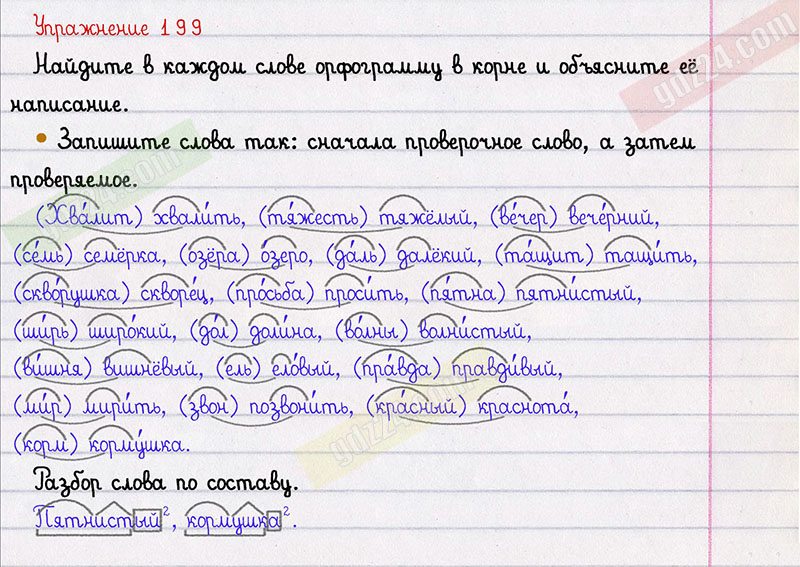 Упражнение 199
Найдите в каждом слове орфограмму в корне и объясните её
написание.
• Запишите слова так: сначала проверочное слово, а затем
проверяемое.
(Хва́лит) хвали́ть, (тя́жесть) тяжёлый, (ве́чер) вече́рний,
(се́мь) семёрка, (озёра) о́зеро, (да́ль) далёкий, (та́щит) тащи́ть,
(скво́рушка) скворе́ц, (про́сьба) проси́ть, (пя́тна) пятни́стый,
(ши́рь) широ́кий, (до́л) доли́на, (во́лны) волни́стый,
(ви́шня) вишнёвый, (ель) ело́вый, (пра́вда) правди́вый,
(ми́р) мири́ть, (звон) позвони́ть, (кра́сный) краснота́,
(корм) корму́шка.
Разбор слова по составу.
Пятнистый², кормушка².
gdz24.com